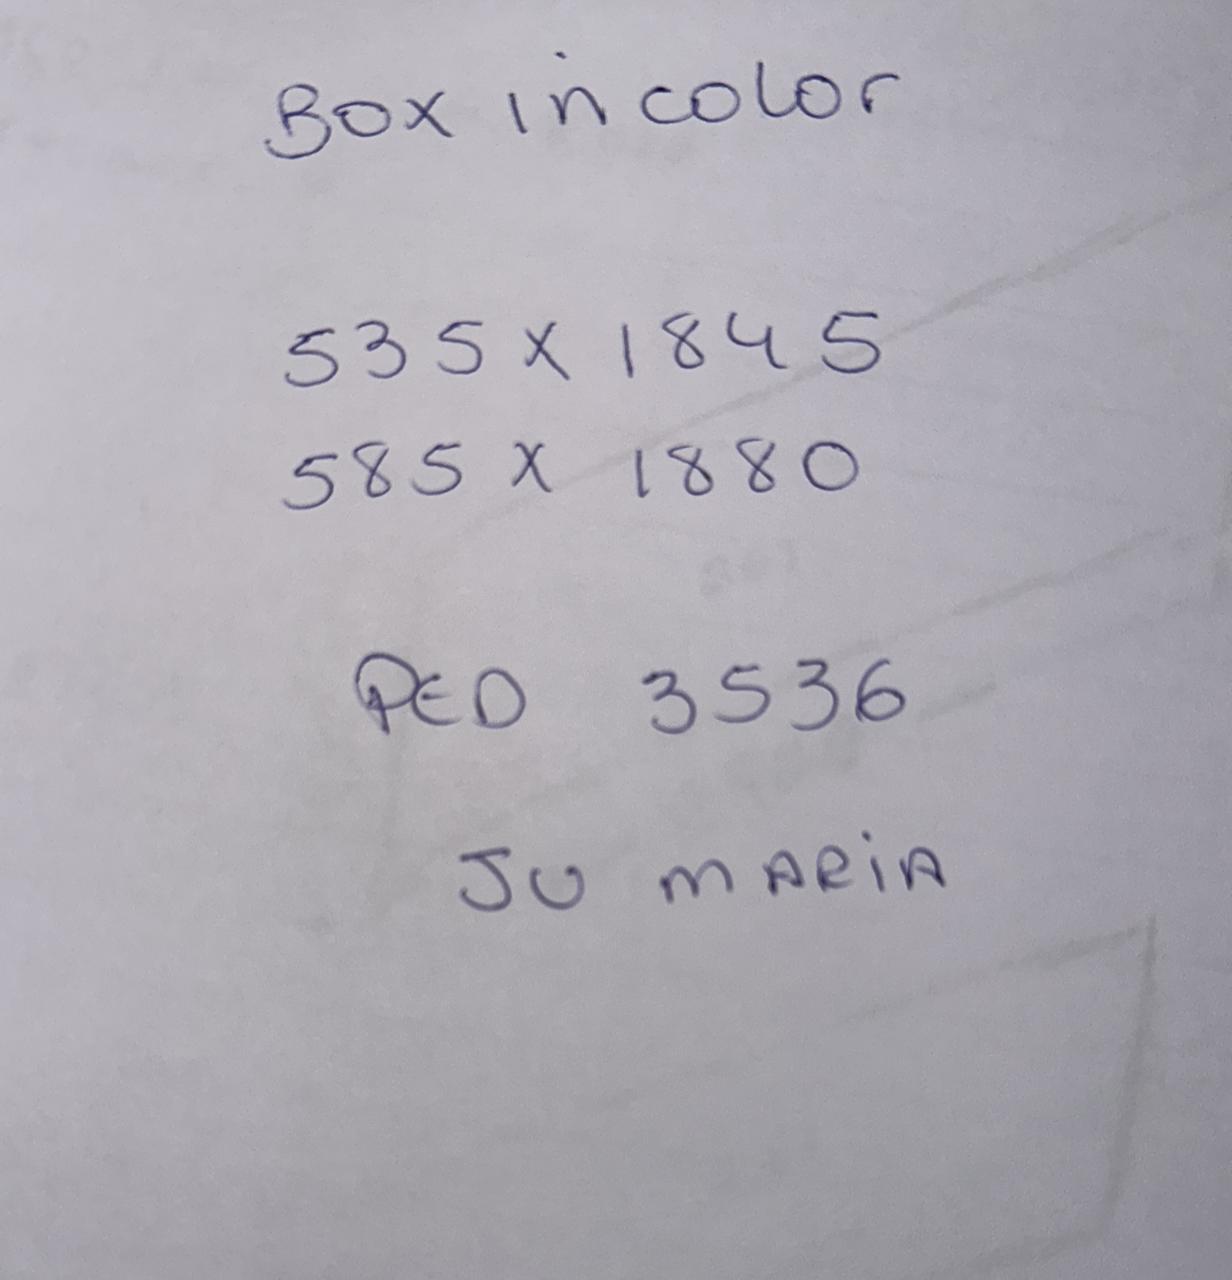 Box incolor
535 x 1845
585 x 1880
PED 3536
JU MARIA